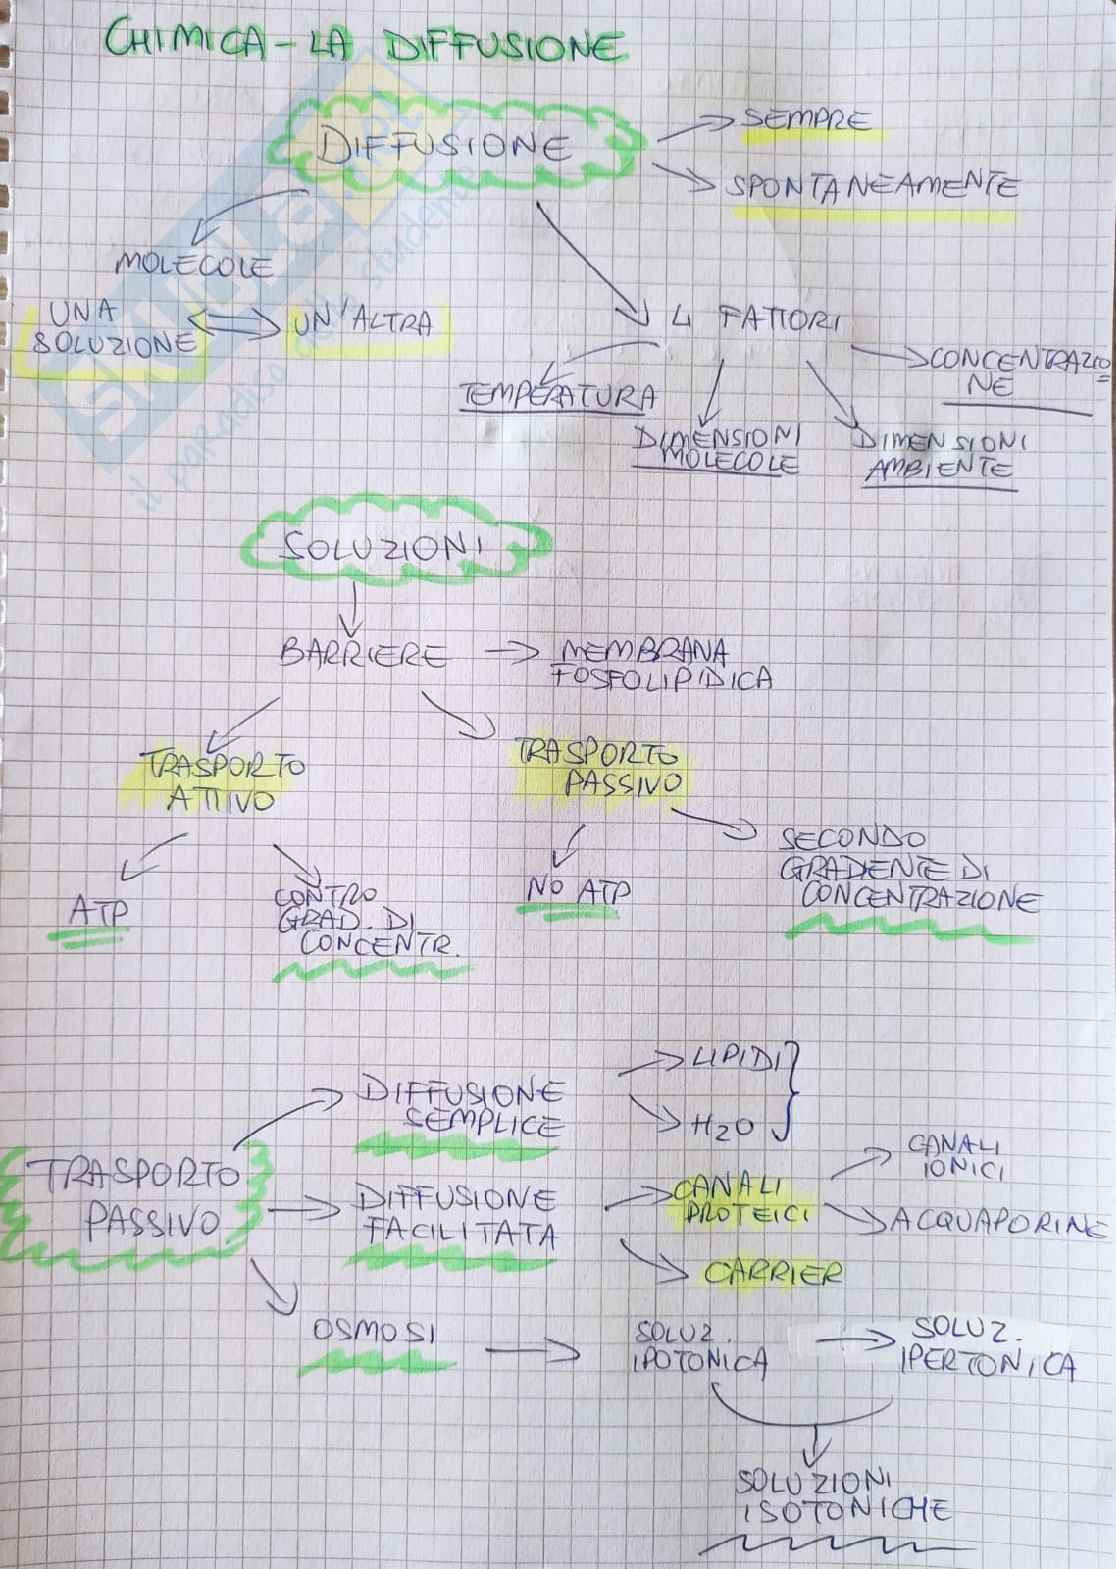 CHIMICA - LA DIFFUSIONE
DIFFUSIONE
SEMPRE
SPONTANEAMENTE
MOLECOLE
UNA
SOLUZIONE
UN'ALTRA
4 FATTORI
TEMPERATURA
DIMENSIONI
MOLECOLE
DIMENSIONI
AMBIENTE
CONCENTRAZIO
NE
SOLUZIONI
BARRIERE
MEMBRANA
FOSFOLIPIDICA
TRASPORTO
ATTIVO
TRASPORTO
PASSIVO
ATP
CONTRO
GRAD. DI
CONCENTR.
NO ATP
SECONDO
GRADENTE DI
CONCENTRAZIONE
TRASPORTO
PASSIVO
DIFFUSIONE
SEMPLICE
LIPIDI
H2O
DIFFUSIONE
FACILITATA
CANALI
PROTEICI
CANALI
IONICI
ACQUAPORINE
CARRIER
OSMOSI
SOLUZ.
IPOTONICA
SOLUZ.
IPERTONICA
SOLUZIONI
ISOTONICHE
il paradiso dello studente